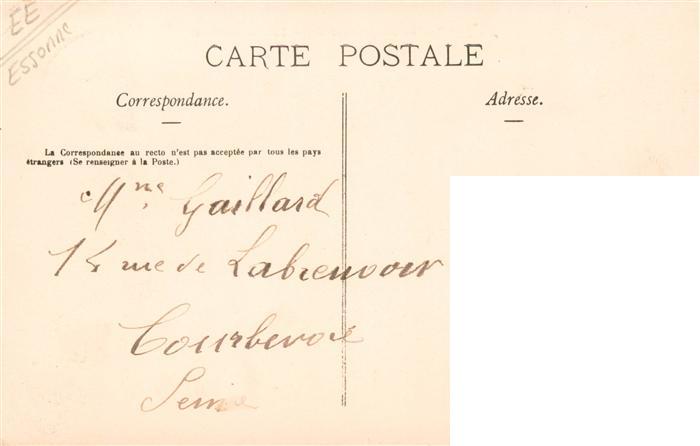 EE
ESSONNE
CARTE POSTALE
Correspondance.
Adresse.
La Correspondance au recto n'est pas acceptée par tous les pays
étrangers (Se renseigner à la Poste.)
Mme Gaillard
14 rue de Labreuvoir
Courbevoie
Seine